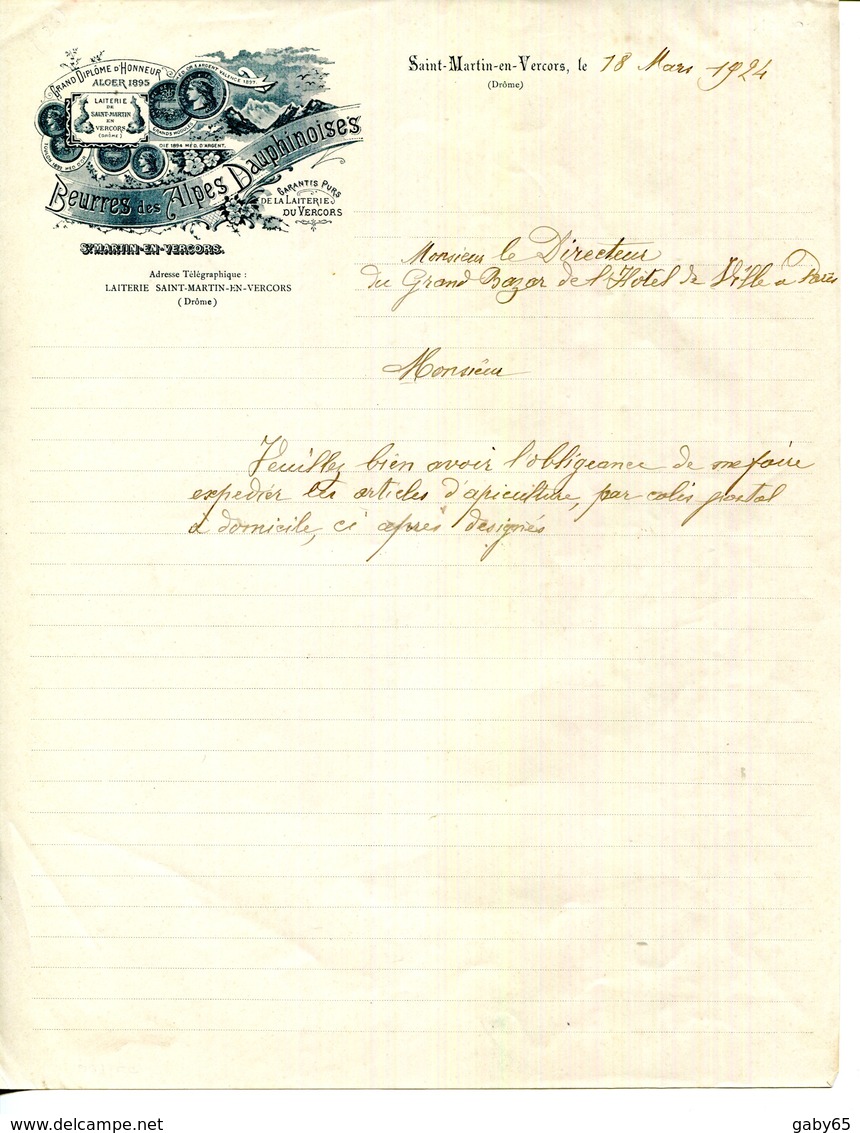 GRAND DIPLÔME D'HONNEUR
ALGER 1895
LAITERIE
DE
SAINT-MARTIN
EN
VERCORS
(DRÔME)
DIE 1894 MÉD. D'ARGENT.
Beurres des Alpes Dauphinoises
GARANTIS PURS
DE LA LAITERIE
DU VERCORS
ST MARTIN-EN-VERCORS.
Adresse Télégraphique :
LAITERIE SAINT-MARTIN-EN-VERCORS
(Drôme)
Saint-Martin-en-Vercors, le 18 Mars 1924
(Drôme)
Monsieur le Directeur
du Grand Bazar de l'Hôtel de Ville a Paris
Monsieur
Veuillez bien avoir l'obligeance de me faire
expedier les articles d'apiculture, par colis postal
a domicile, ci apres designés
delcampe.net
gaby65